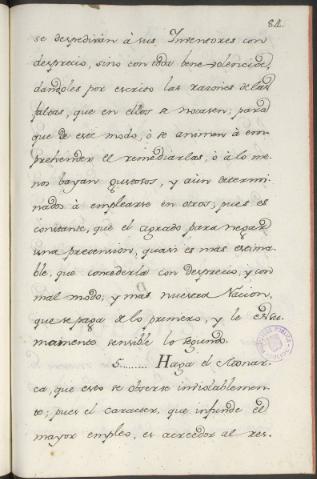 84.
se despedirán à sus Inventores con
desprecio, sino con toda benevolencia,
dandoles por escrito las razones de las
faltas, que en ellos se notasen; para
que de este modo, ò se animen à em-
prehender el remediarlas, ò à lo me-
nos bayan gustosos, y aùn determi-
nados à emplearse en otros; pues es
constante, que el agrado para negar
una pretension, quasi es mas estima-
ble, que concederla con desprecio, y con
mal modo; y mas nuestra Nacion,
que se paga de lo primero, y le es su-
mamente sensible lo segundo.
5......... Haga el Monar-
ca, que esto se observe inviolablemen-
te; pues el caracter, que infunde el
mayor empleo, es acreedor al res-